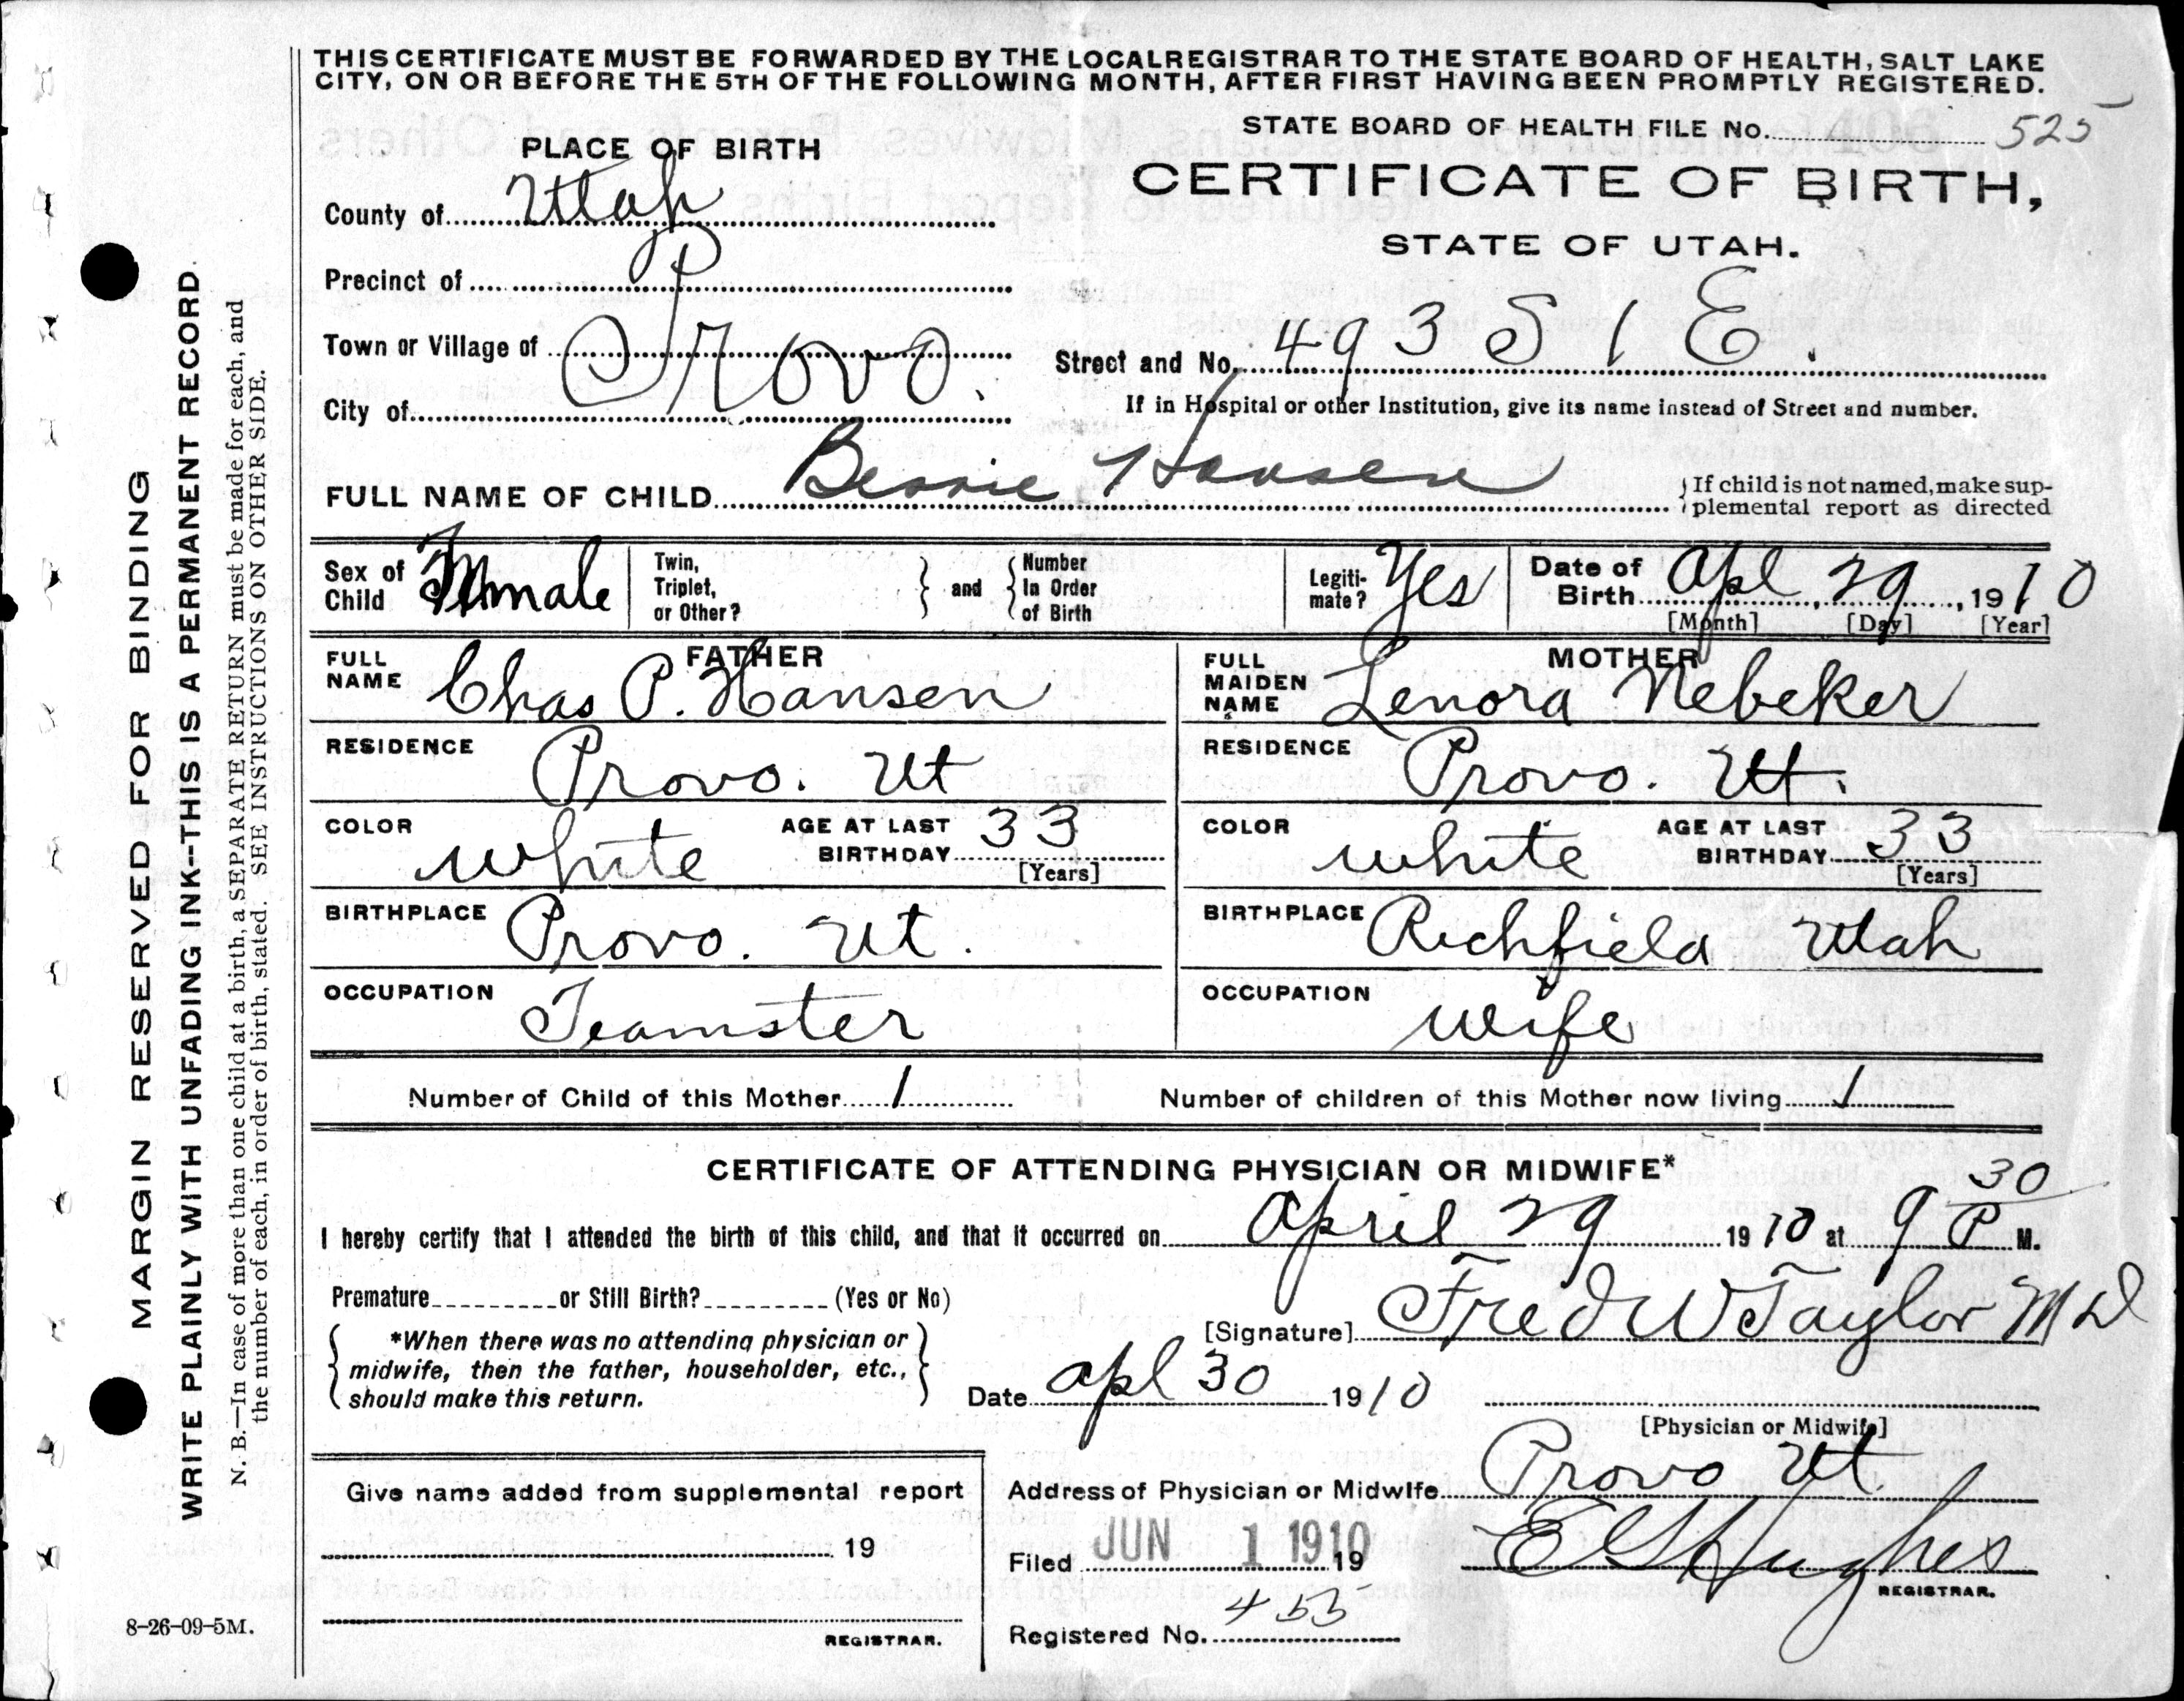 THIS CERTIFICATE MUST BE FORWARDED BY THE LOCAL REGISTRAR TO THE STATE BOARD OF HEALTH, SALT LAKE
CITY, ON OR BEFORE THE 5TH OF THE FOLLOWING MONTH, AFTER FIRST HAVING BEEN PROMPTLY REGISTERED.
STATE BOARD OF HEALTH FILE No. 525
PLACE OF BIRTH
CERTIFICATE OF BIRTH,
STATE OF UTAH.
County of Utah
Precinct of
Town or Village of Provo.
City of
Street and No. 493 S 1 E.
If in Hospital or other Institution, give its name instead of Street and number.
FULL NAME OF CHILD Bessie Hansen
If child is not named, make sup-
plemental report as directed
Sex of Child Female
Twin, Triplet, or Other? } and { Number In Order of Birth
Legiti-mate? Yes
Date of Birth Apl 29, 1910
[Month] [Day] [Year]
FATHER
FULL NAME Chas P. Hansen
RESIDENCE Provo. Ut
COLOR White
AGE AT LAST BIRTHDAY 33
[Years]
BIRTHPLACE Provo. Ut.
OCCUPATION Teamster
MOTHER
FULL MAIDEN NAME Lenora Nebeker
RESIDENCE Provo. Ut.
COLOR White
AGE AT LAST BIRTHDAY 33
[Years]
BIRTHPLACE Richfield Utah
OCCUPATION Wife
Number of Child of this Mother 1
Number of children of this Mother now living 1
CERTIFICATE OF ATTENDING PHYSICIAN OR MIDWIFE*
I hereby certify that I attended the birth of this child, and that it occurred on April 29 1910 at 9 30 P M.
Premature or Still Birth? (Yes or No)
*When there was no attending physician or
midwife, then the father, householder, etc.,
should make this return.
[Signature] Fred W Taylor MD
Date Apl 30 1910
[Physician or Midwife]
Give name added from supplemental report
19
REGISTRAR.
Address of Physician or Midwife Provo Ut
Filed JUN 1 1910 19
E G Hughes
REGISTRAR.
Registered No. 455
8-26-09-5M.
MARGIN RESERVED FOR BINDING
WRITE PLAINLY WITH UNFADING INK--THIS IS A PERMANENT RECORD.
N. B.—In case of more than one child at a birth, a SEPARATE RETURN must be made for each, and
the number of each, in order of birth, stated. SEE INSTRUCTIONS ON OTHER SIDE.